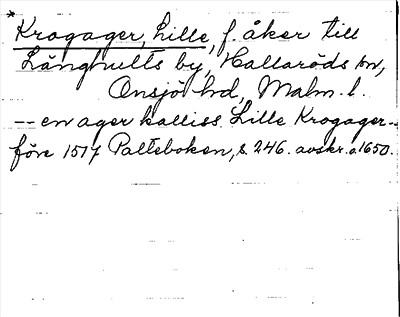 *Krogager, Lille, f. åker till
Långhults by, Hallaröds sn,
Onsjö hd, Malm. l.
-- en ager kalliss Lille Krogager --
före 1517 Palteboken, s. 246. avskr. o. 1650.